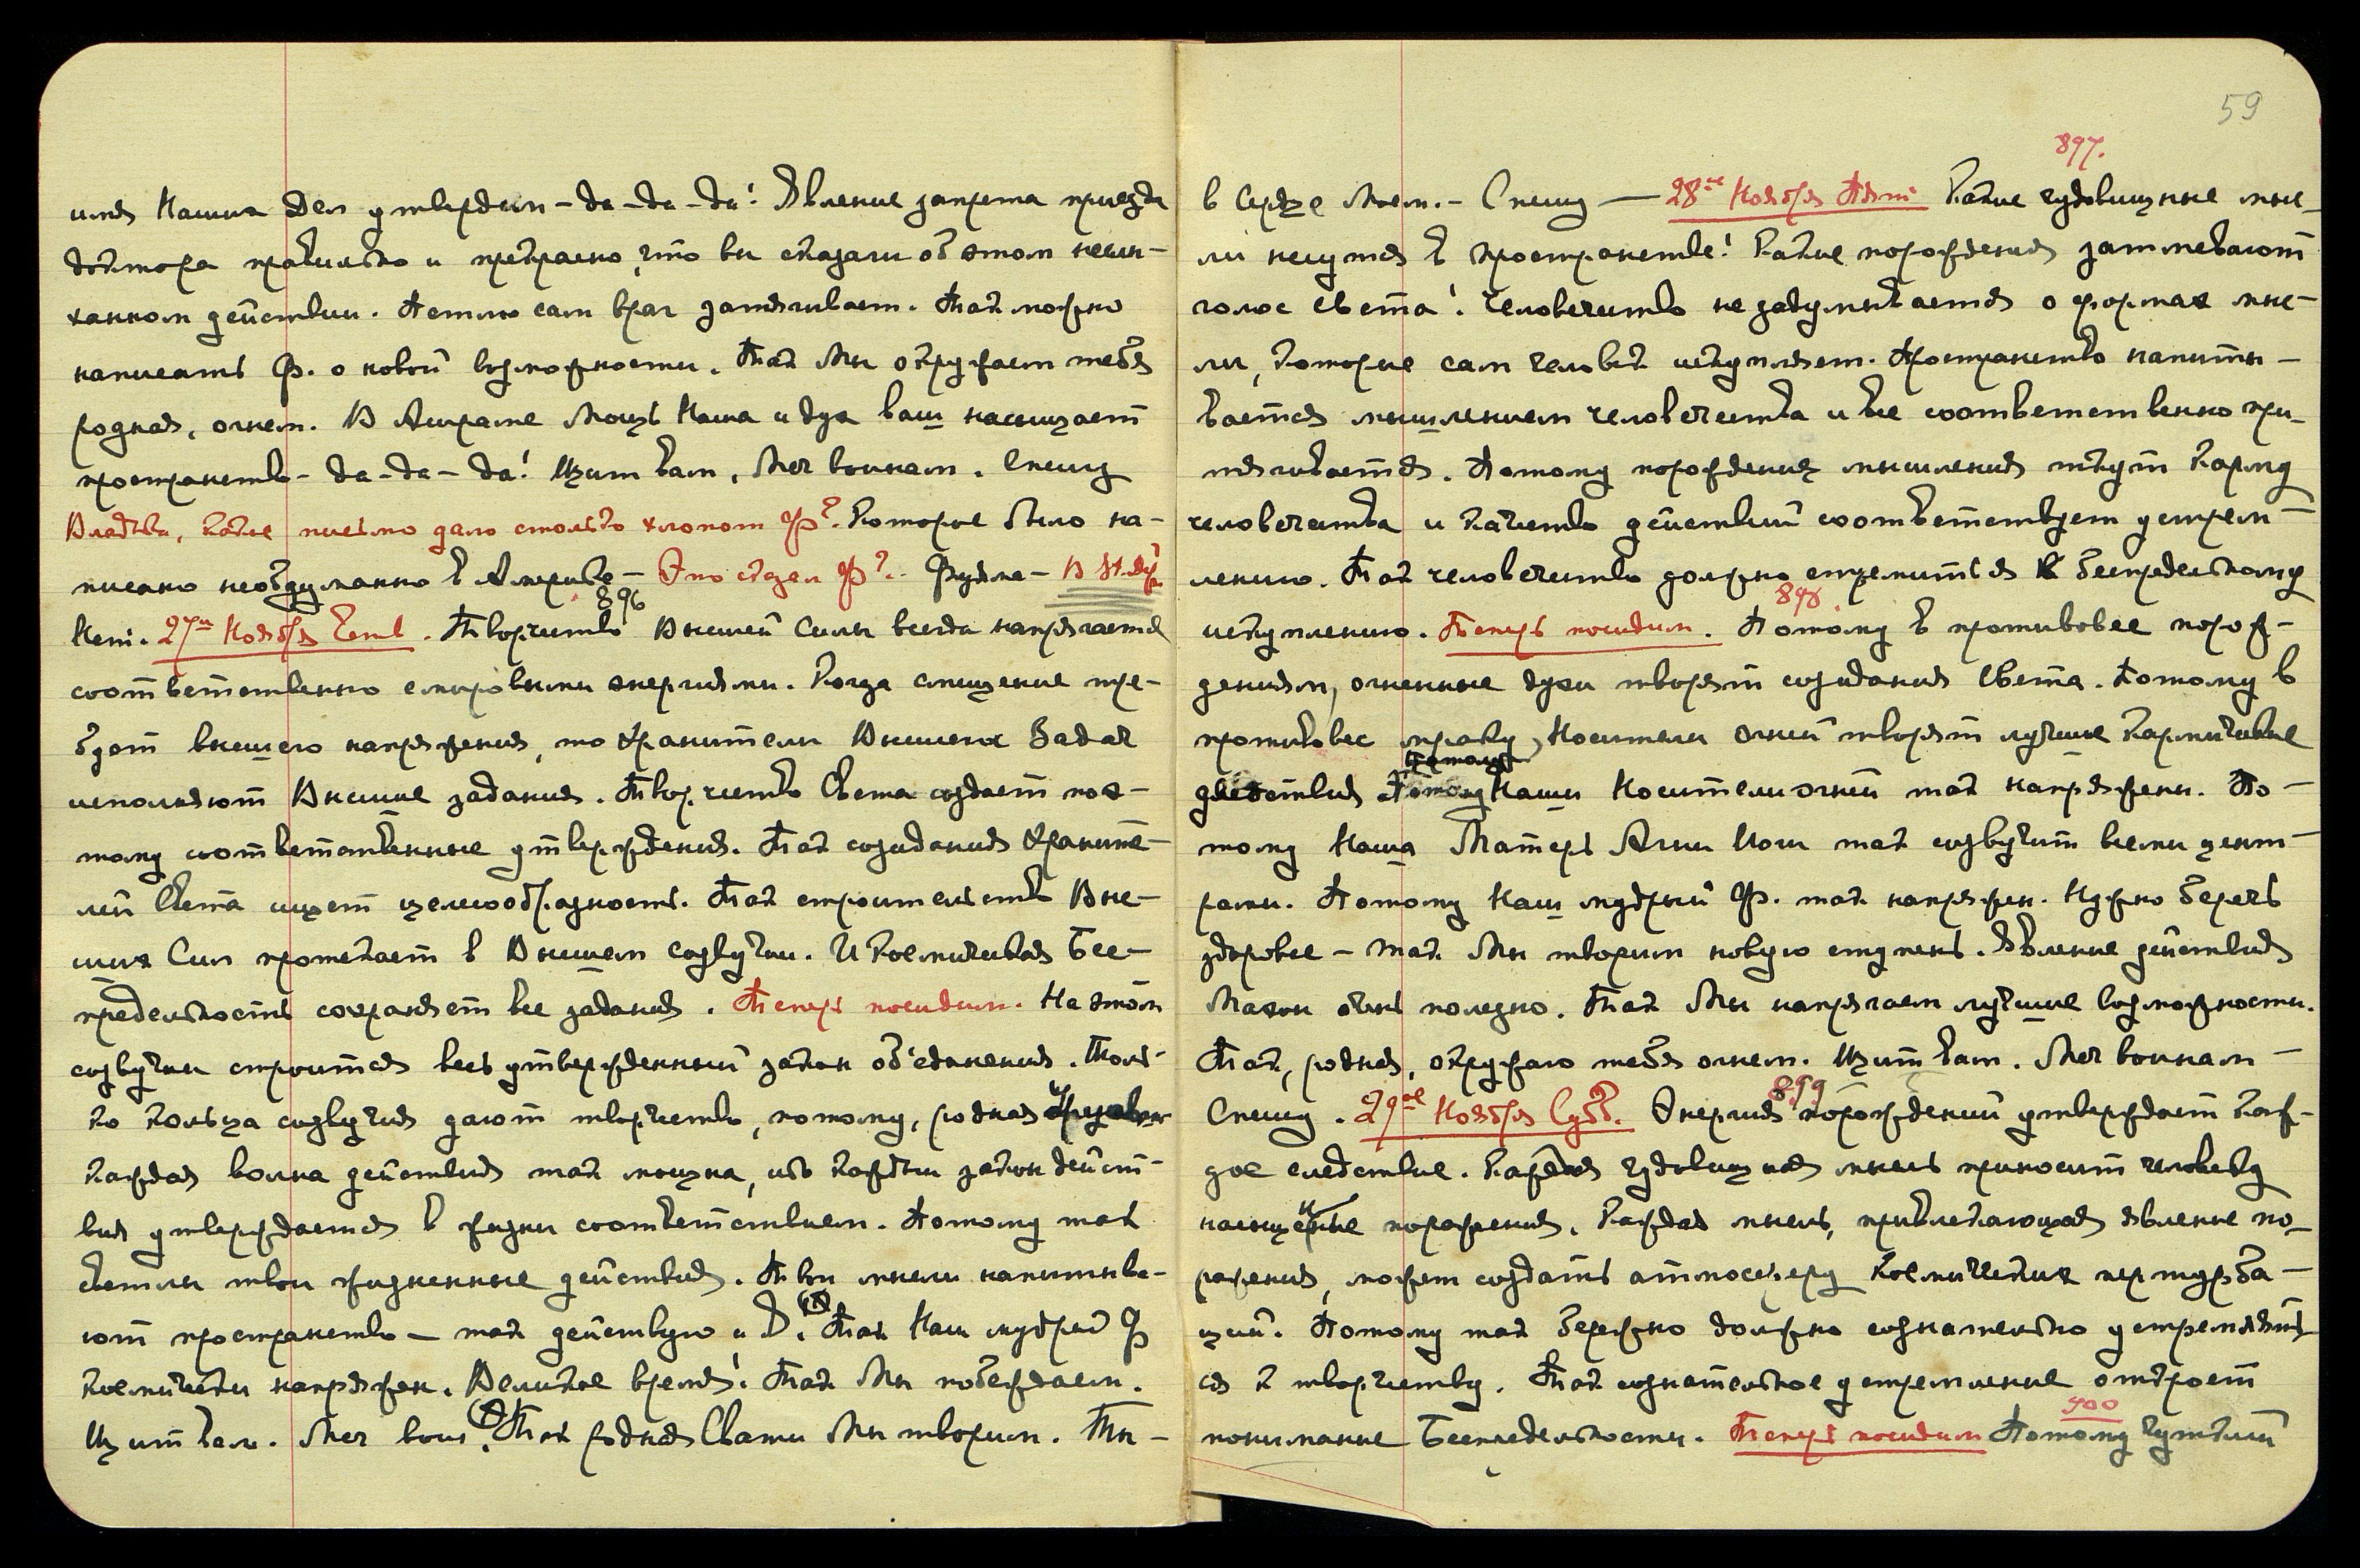 имя Наших Дел утвердим – да-да-да! Явление запрета приезда
доктора правильно и прекрасно, что вы сказали об этом неслы-
ханном действии. Петлю сам враг затягивает. Так можно
написать Ф. о новой возможности. Так Мы окружаем тебя
родная, огнем. В Ашраме Мощь Наша и дух ваш насыщает
пространство – да-да-да! Щит вам, Меч воинам. Спешу
Владыка, какое письмо дало столько хлопот Ф?. Которое было на-
писано необдуманно в Америке – Это сделал Ф?..
Нет. 27го Ноября Четв. 896 Творчество Высшей Силы всегда напрягается
соответственно с мировыми энергиями. Когда смещение тре-
бует высшего напряжения, то Хранители Высших Задач
исполняют Высшие задания. Творчество Света создает поэ-
тому соответственные утверждения. Так созидания Храните-
лей Света ищет целесообразность. Так строительство Выс-
ших Сил протекает в Высшем Созвучии. И Космическая Бес-
предельность сохраняет все задания. Теперь посидим. На этом
созвучии строится весь утвержденный закон объединения. Толь-
ко кольца созвучия дают творчество, потому, родная
каждая волна действия так мощна, ибо каждый закон дейст-
вия утверждается в жизни соответствием. Потому так
светлы твои жизненные действия. Твои мысли напитыва-
ют пространство – так действую и Я. Так Наш мудрый Ф
космически напряжен. Великое время! Так Мы побеждаем.
Щит вам. Меч воин. Так родная Свати Мы творим. Ты –
59
897.
в Сердце Моем. – Спешу — 28ое Ноября Пятн Какие чудовищные мыс-
ли несутся в пространстве! Какие порождения затмевают
голос света! Человечество не задумывается о формах мыс-
ли, которые сам человек искупляет. Пространство напиты-
вается мышлением человечества и все соответственно при-
тягивается. Потому порождения мышления ткут карму
человечества и качество действий соответствует устрем-
лению. Так человечество должно стремиться к беспредельному
искуплению. Теперь посидим. 898. Потому в противовес порож-
дениям, огненные духи творят созидания Света. Потому в
противовес мраку, Носители Огней творят лучшие кармические
действия Потому Наши Носители огней так напряжены. По-
тому Наша Матерь Агни Йоги так созвучит всеми цент-
рами. Потому Наш мудрый Ф. так напряжен. Нужно беречь
здоровье – так Мы творим новую ступень. Явление действия
Махон очень полезно. Так Мы напрягаем лучшие возможности.
Так, родная, окружаю тебя огнем. Щит вам. Меч воинам –
Спешу. 29ое Ноября Субб. 899 Энергия порождений утверждает каж-
дое следствие. Каждая чудовищная мысль приносит человеку
насыщенные поражения. Каждая мысль, привлекающая явление по-
ражения, может создать атмосферу космических пертурба-
ций. Потому так бережно должно сознательно устремлять-
ся к творчеству. Так сознательное устремление откроет
понимание Беспредельности. Теперь посидим 900 Потому чуткий